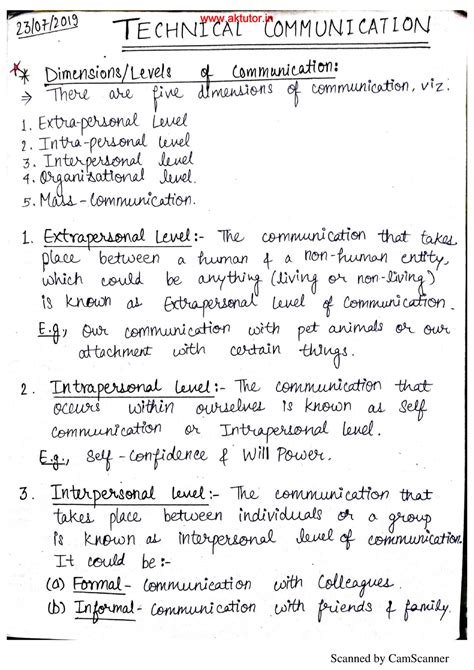 www.aktutor.in
23/07/2019
TECHNICAL COMMUNICATION
* Dimensions/Levels of Communication:
⇒ There are five dimensions of communication, viz.
1. Extra-personal Level
2. Intra-personal level
3. Interpersonal level
4. Organisational level.
5. Mass-Communication.
1. Extrapersonal Level:- The communication that takes
place between a human & a non-human entity,
which could be anything (living or non-living)
is known as Extrapersonal level of Communication.
E.g., Our communication with pet animals or our
attachment with certain things.
2. Intrapersonal level:- The communication that
occurs within ourselves is known as Self
communication or Intrapersonal level.
E.g., Self-Confidence & Will Power.
3. Interpersonal level:- The communication that
takes place between individuals or a group
is known as interpersonal level of communication.
It could be:-
(a) Formal- Communication with Colleagues.
(b) Informal- Communication with friends & family.
Scanned by CamScanner